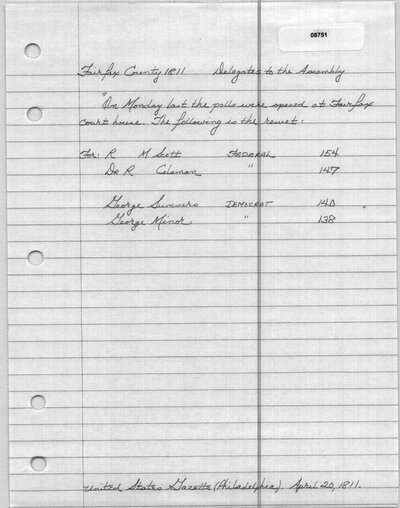 08751
Fairfax County 1811 Delegates to the Assembly
"On Monday last the polls were opened at Fairfax
court house. The following is the result:
For: R M Scott FEDERAL 154
Dr R Coleman " 147
George Summers DEMOCRAT 140 "
George Minor " 138
United States Gazette (Philadelphia). April 20, 1811.